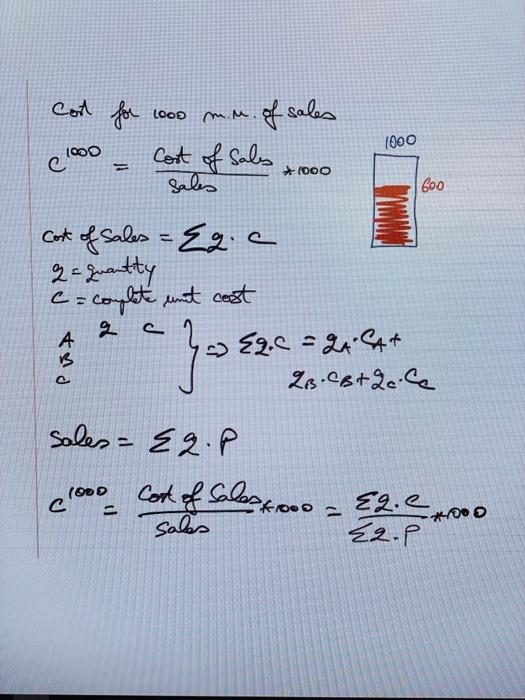 Cost for 1000 m.u. of sales
1000
C^1000 = Cost of Sales / Sales * 1000
600
Cost of Sales = Σq.c
q = quantity
c = complete unit cost
q c
A
B
C
} => Σq.c = qA.CA +
qB.CB + qC.CC
Sales = Σq.P
C^1000 = Cost of Sales / Sales * 1000 = Σq.c / Σq.P * 1000